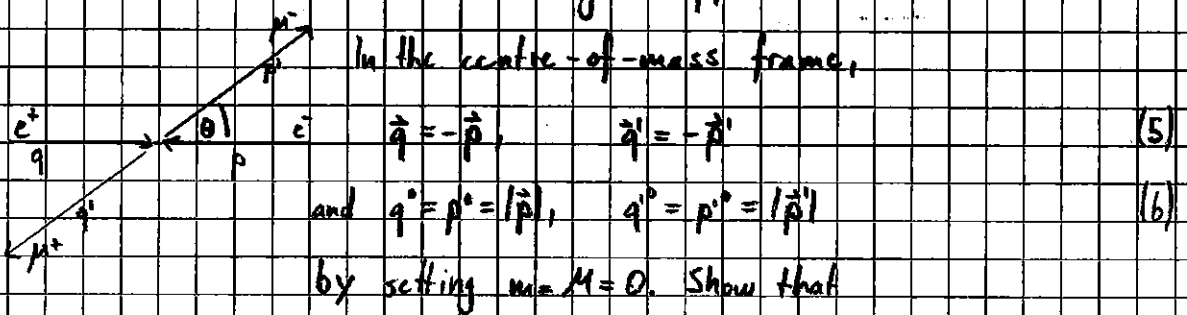 μ⁻
p'
In the centre-of-mass frame,
e⁺ θ e⁻ q⃗ = -p⃗, q⃗' = -p⃗' (5)
q p
q' and q⁰ = p⁰ = |p⃗|, q'⁰ = p'⁰ = |p⃗'| (6)
μ⁺
by setting m = M = 0. Show that